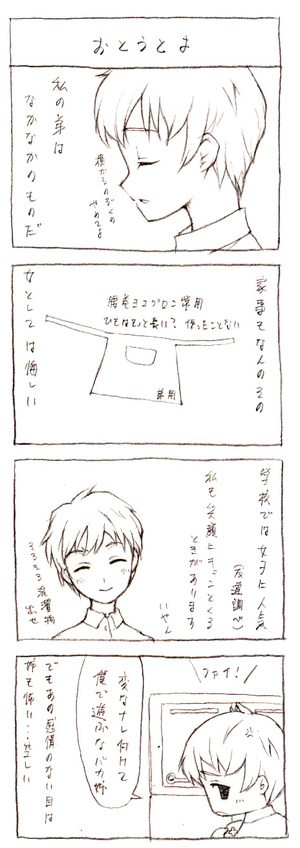 おとうとよ
私の弟は
なかなかのものだ
横からのぞくの
やめてよ
家事もなんのその
腰巻エコプロン常用
ひもはもっと長い？使ったことない
弟用
女としては悔しい
学校では女子に人気
(友達調べ)
私も笑顔にキュンとくる
ときがあります
いやん
そろそろ洗濯物
出せ
ファイ!
変なナレ付けて
僕で遊ぶなバカ姉
でもあの感情のない目は
姉も怖い…悲しい